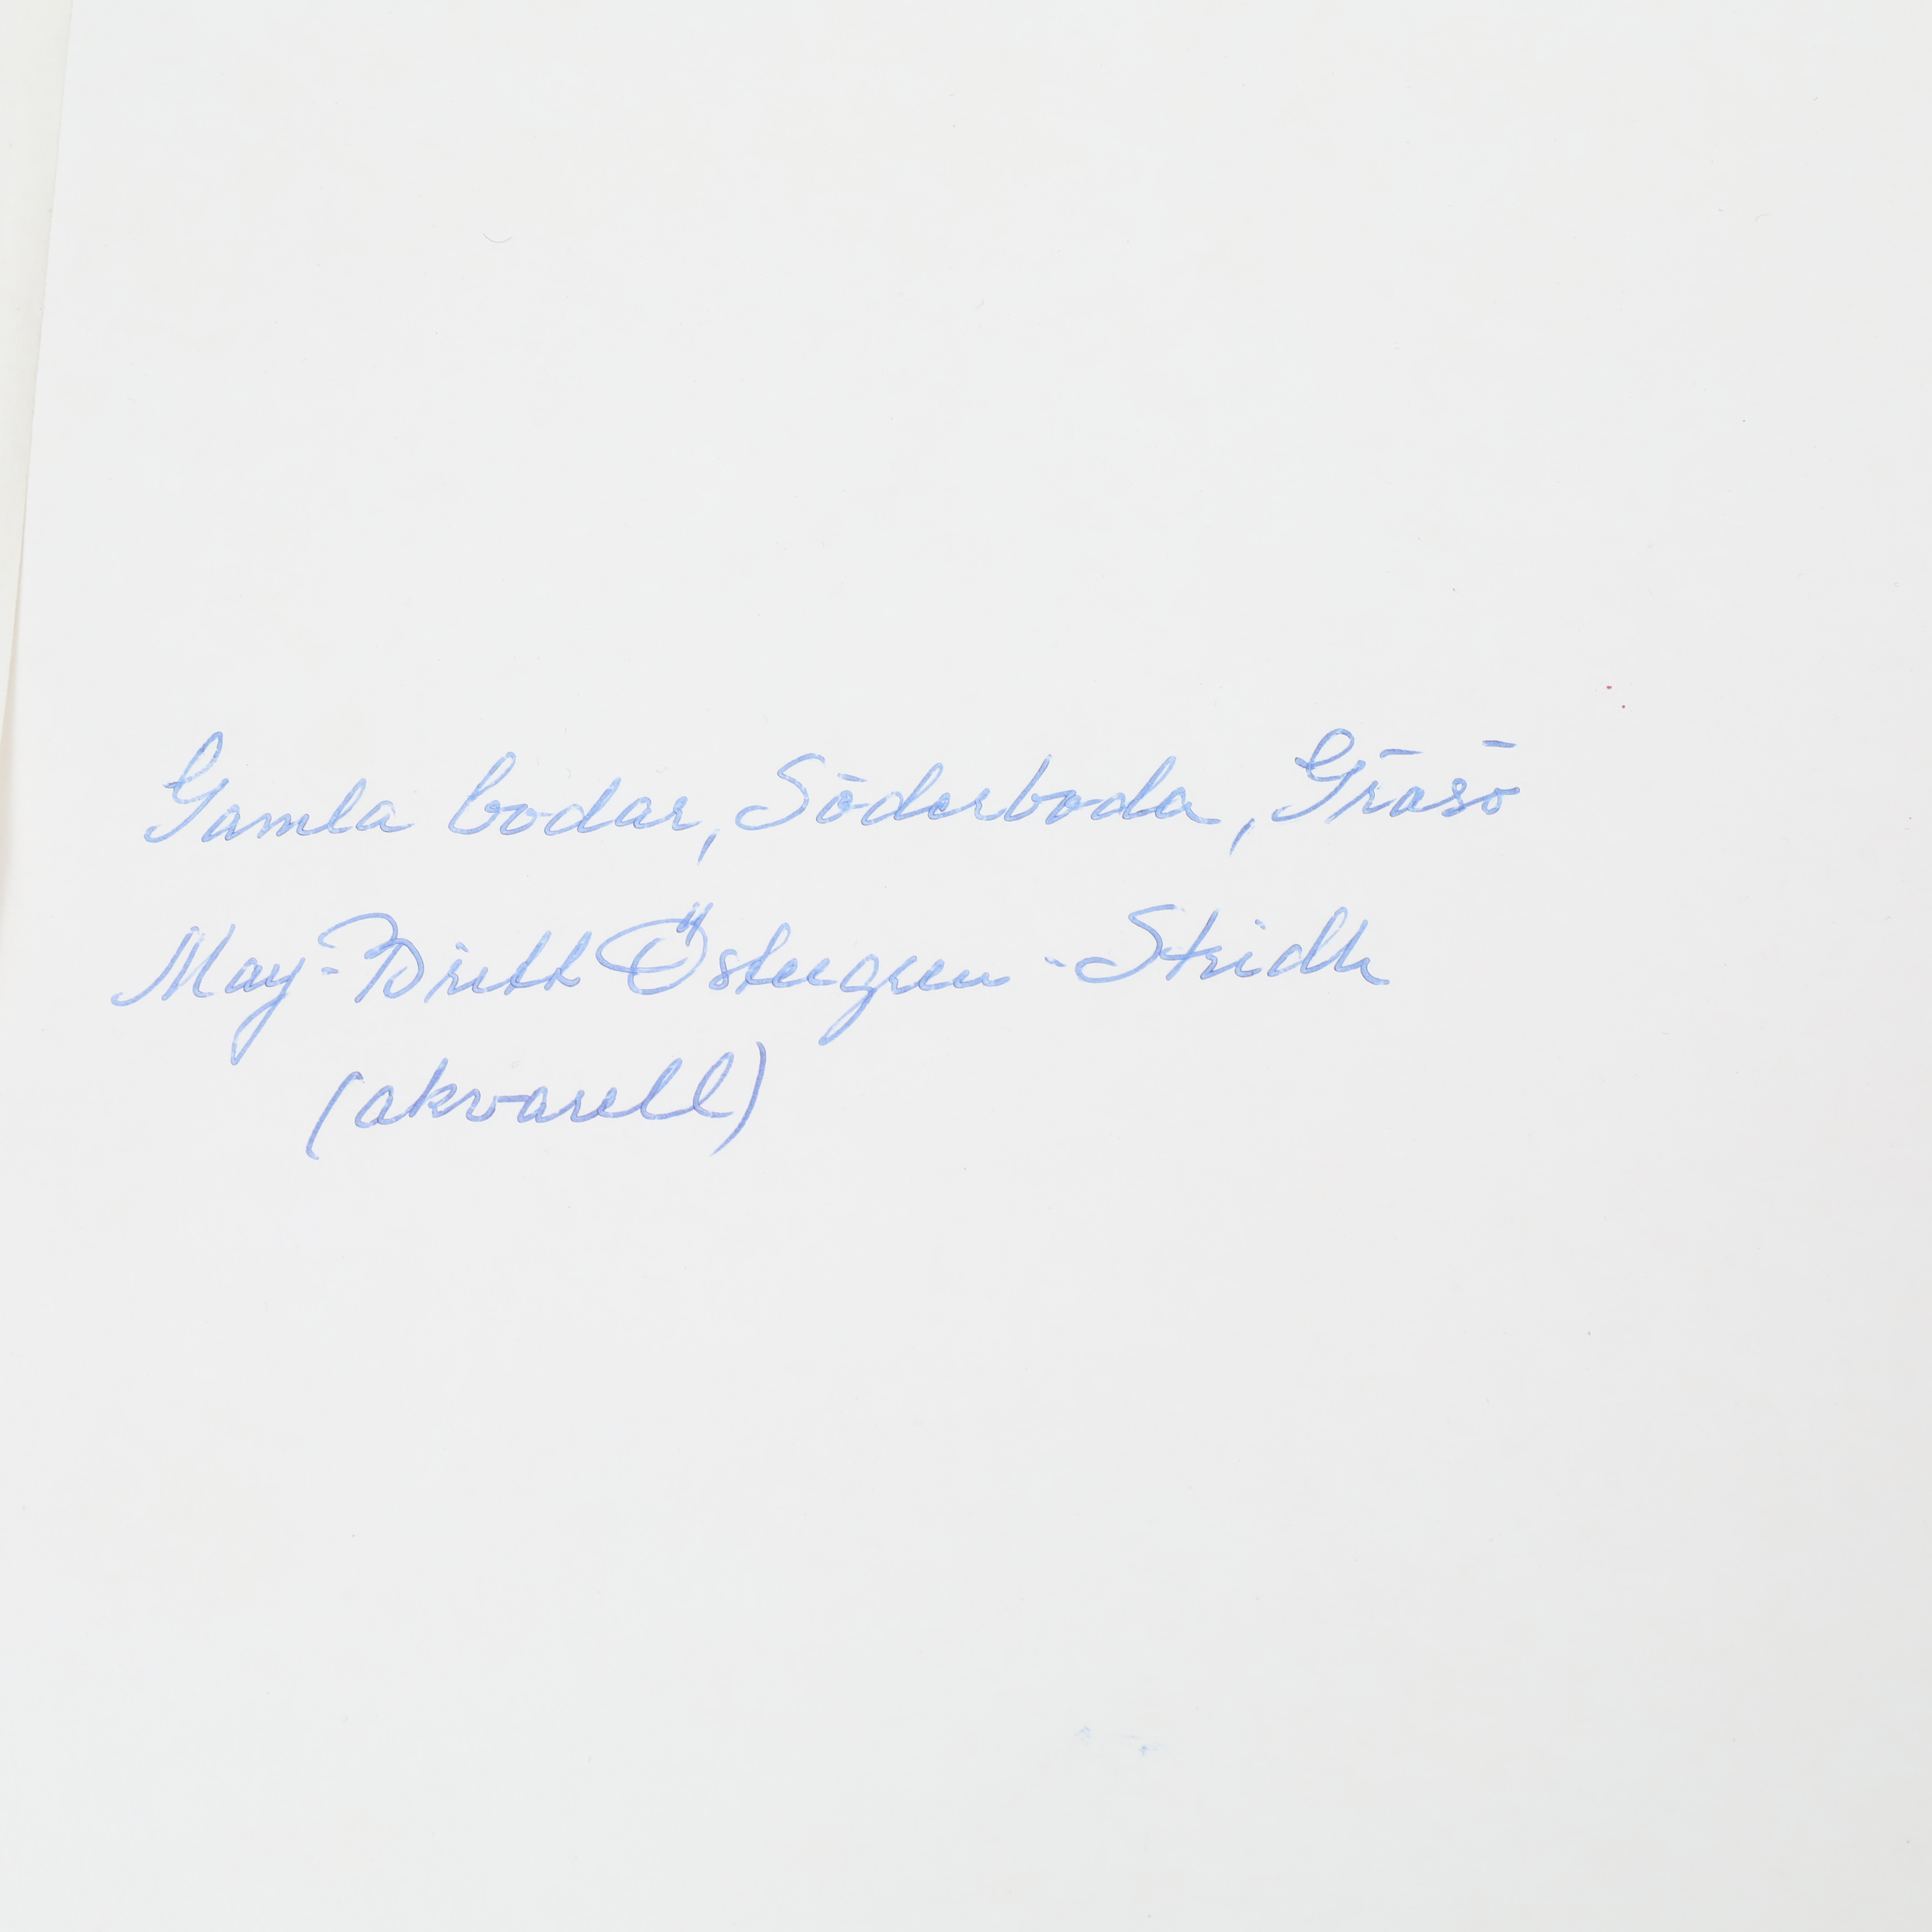 Gamla bodar, Söderboda, Gräsö
May-Britt Östergren - Stridh
(akvarell)